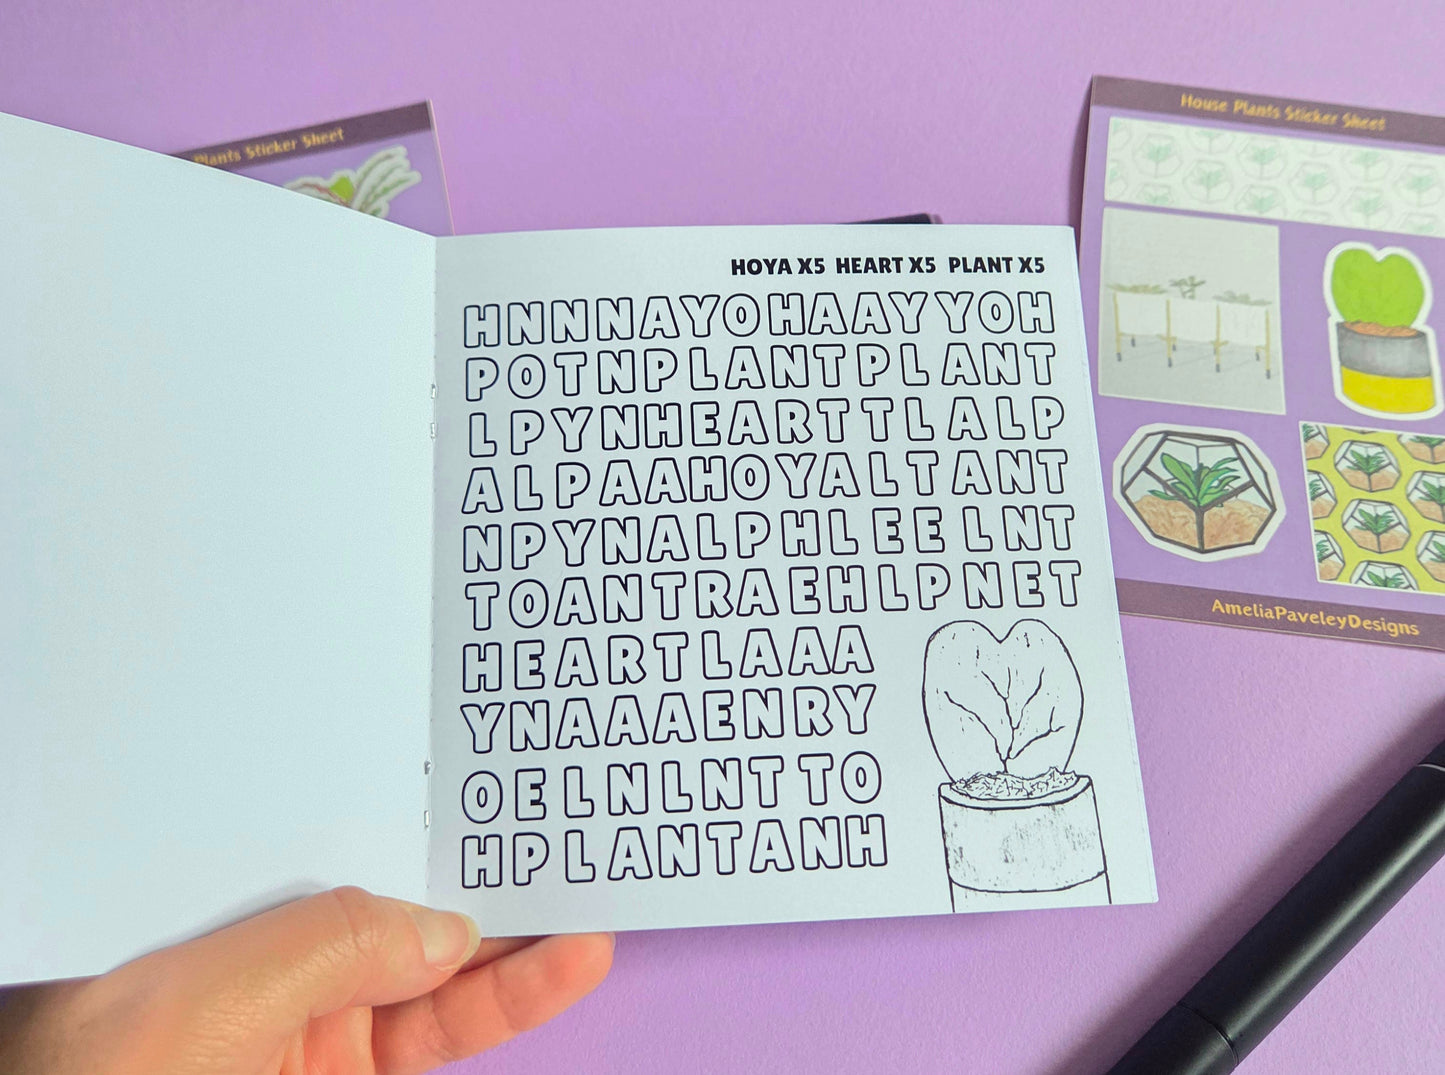 Plants Sticker Sheet
House Plants Sticker Sheet
HOYA X5 HEART X5 PLANT X5
HNNNAYOHAAYYOH
POTNPLANTPLANT
LPYNHEARTTLALP
ALPAAHOYALTANT
NPYNALPHLEELNT
TOANTRAEHLPNET
HEARTLAAA
YNAAAENRY
OELNLNTTO
HPLANTANH
AmeliaPaveleyDesigns